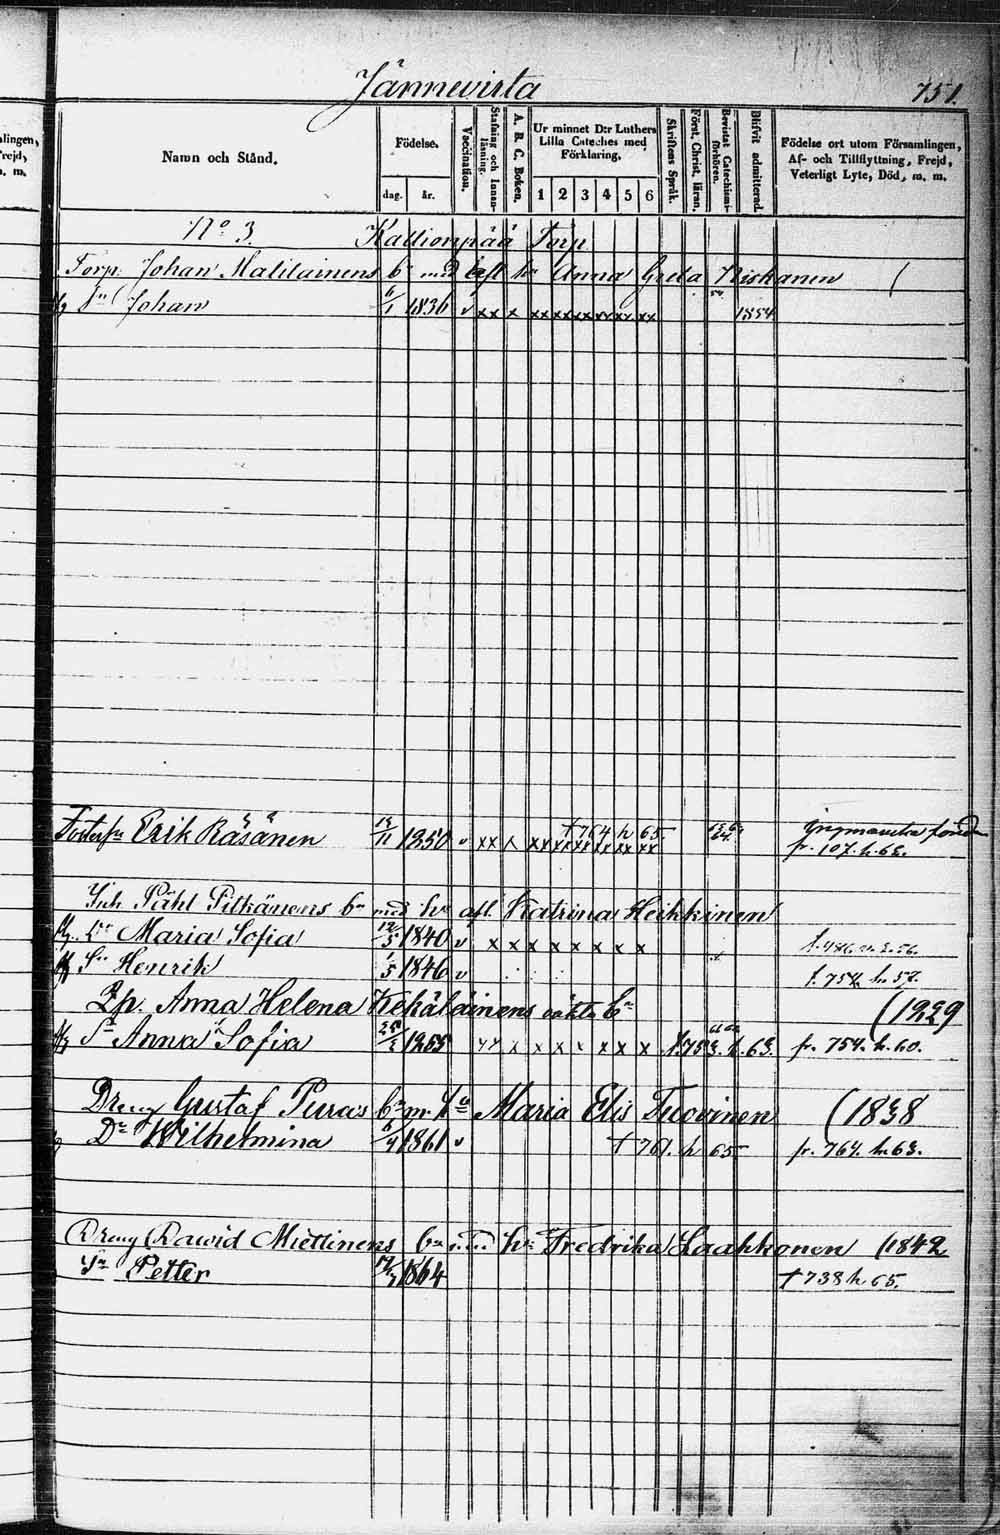 Jännevirta 751.
lingen,
Frejd,
m. m.
Namn och Stånd.
Födelse.
dag. år.
Vaccination.
Stafning och Innan-läsning.
A. B. C. Boken.
Ur minnet D:r Luthers Lilla Cateches med Förklaring,
1 2 3 4 5 6
Skriftens Språk.
Först. Christ. läran.
Bevistat Catechismi-förhören.
Blifvit admitterad.
Födelse ort utom Församlingen, Af- och Tillflyttning, Frejd, Veterligt Lyte, Död, m. m.
No 3. Kallionpää Torp
Torp. Johan Malilainens bn med afl hu Anna Greta Niskanen (
Sn Johan 6/1 1836 v xx x xx xx xx xx xx xx 1854
Erik Räsänen 1850 v xx x xx xx xx xx xx xx † 764 h 65.
fr. 107. h. 63.
Inh Påhl Pitkänens bn med hu afl. Katrina Heikkinen
Dr Maria Sofia 12/5 1840 v x x x x x x x x f. 486. 56.
Sn Henrik 1/5 1846 v f. 754. h. 57.
Anna Helena Kekäläinens oäkta bn (1929
Anna Sofia 1855 x x x x x x x h. 63. fr. 754. h. 60.
Dreng Gustaf Puras bn m. hu Maria Elis Tuovinen (1838
Dr Wilhelmina 6/4 1861 v † 761. h 65 fr. 764. h. 63.
Dreng Dawid Miettinens bn med hu Fredrika Laakkonen (1842
Sn Petter 1864 † 738 h. 65.